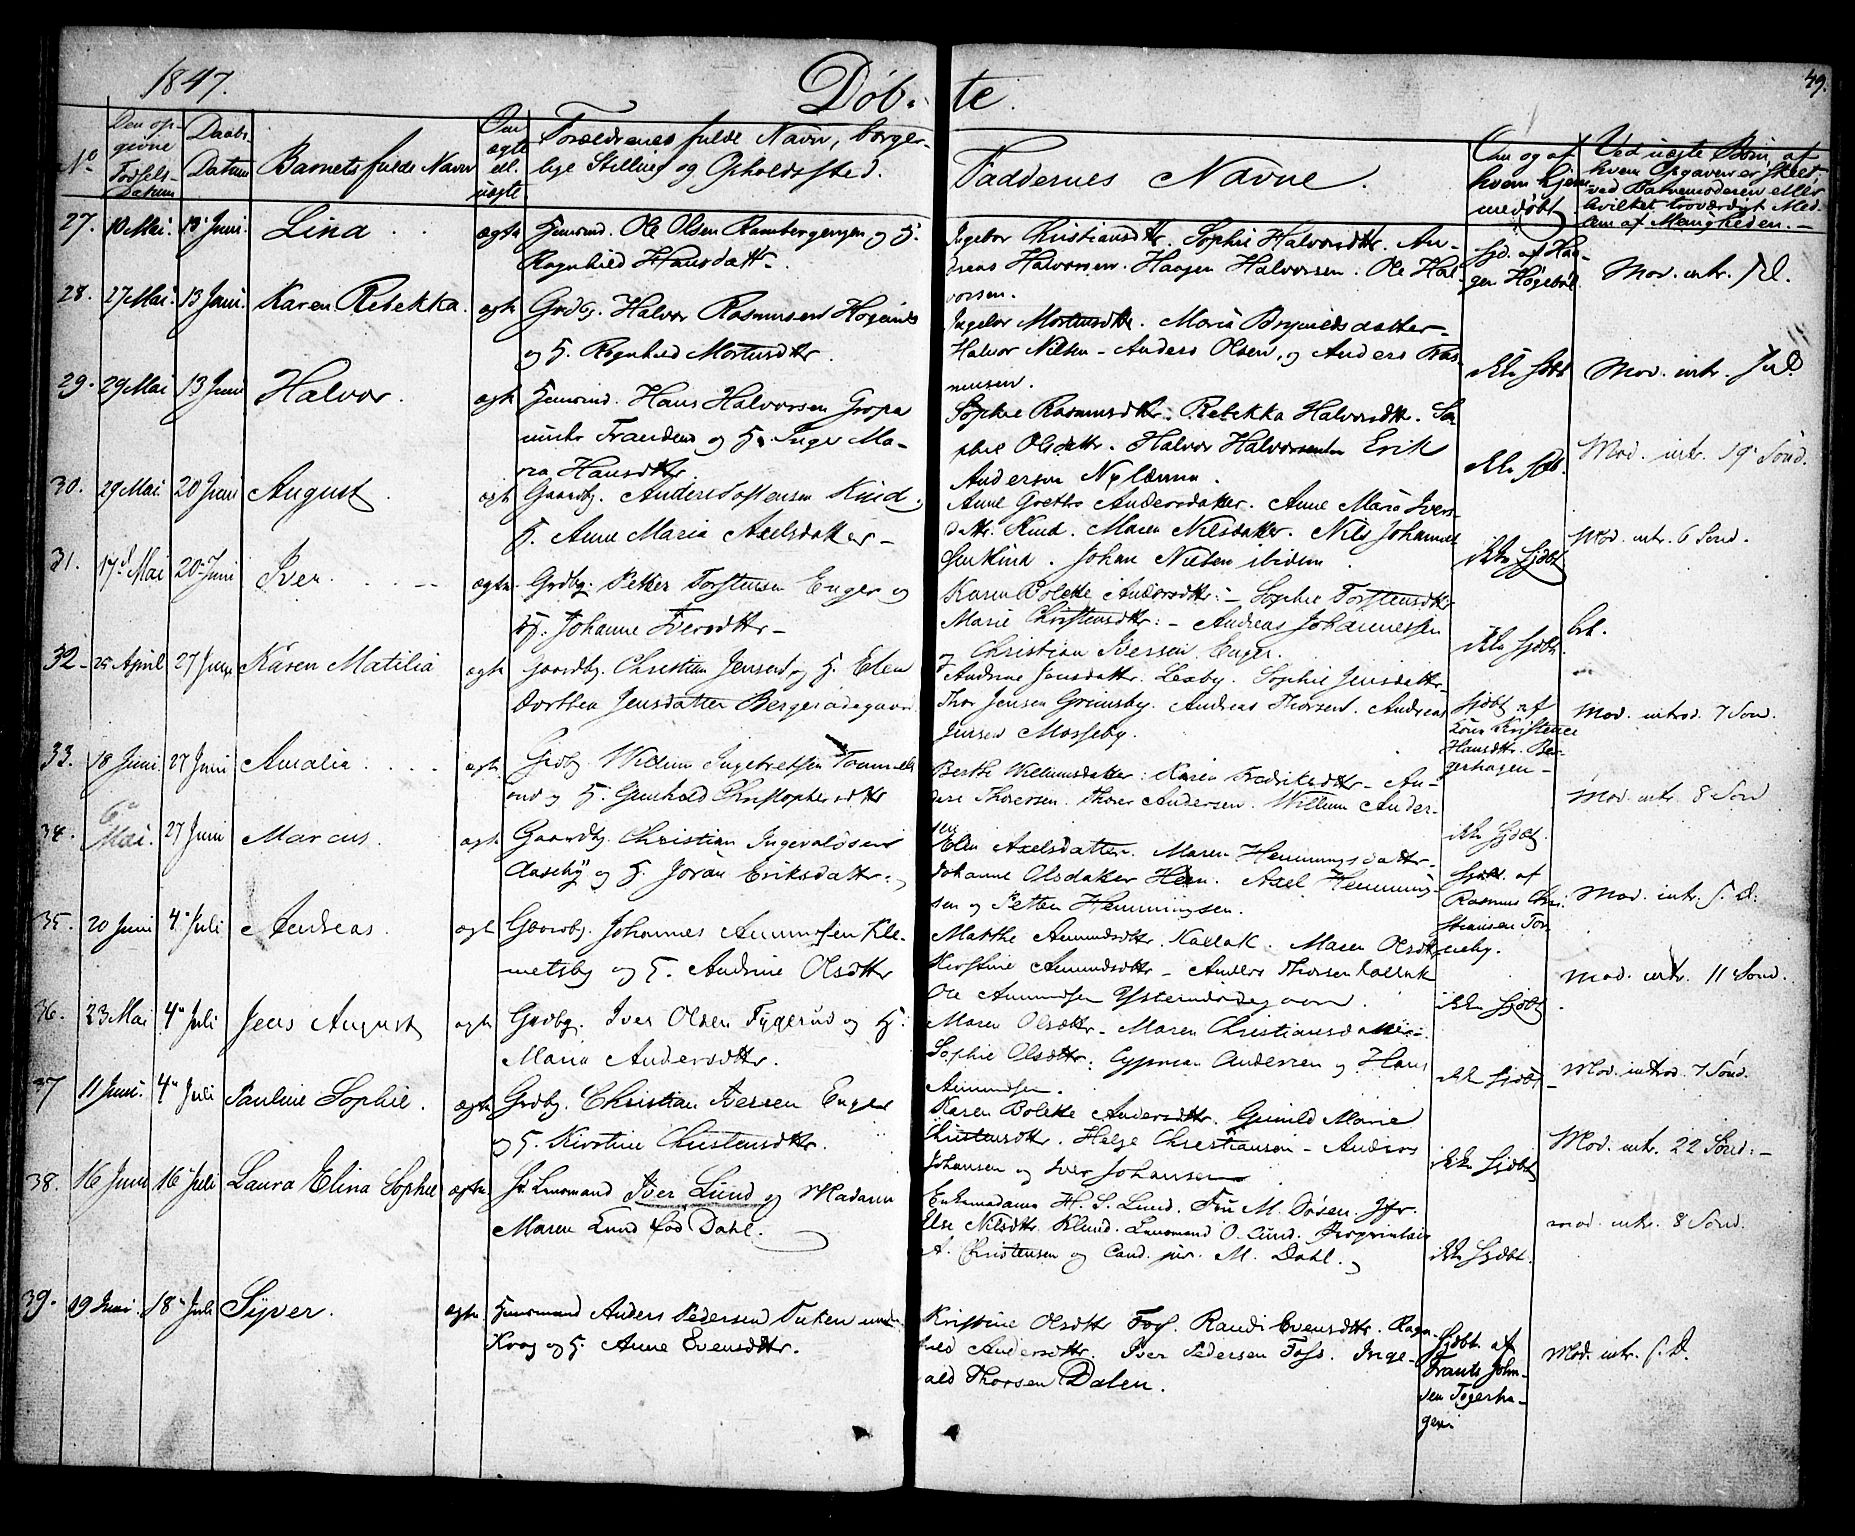 1847.
Döb-te.
49.
No
Den opgivne Fødsels-Datum
Daabs Datum
Barnets fulde Navn
Om ægte ell. uægte
Forældrenes fulde Navn, borgerlige Stilling og Opholdssted.
Faddernes Navne.
Om og af hvem hjemmedøbt
Ved uægte Børn, af hvem Opgaven er skeet ved Barnemoderen eller hvilket troværdigt Medlem af Menigheden.-
27. 10 Mai. 13 Juni. Lina ægte Huusmd. Ole Olsen og H.
Ragnhild Hansdatt.
Ingebor Christiansdtr. Sophie Halvorsdtr. An-
dreas Halvorsen. Haagen Halvorsen. Ole Hal-
vorsen.
Hjd. af Haa-
gen Høgebøl
Mod. intr. s. D.
28. 27 Mai. 13 Juni. Karen Rebekka. ægte Grdbg. Halvor Rasmussen
og H. Ragnhild Mortensdtr.
Ingebor Mortensdtr. Maria Brynildsdatter-
Halvor Nilsen - Anders Olsen, og Anders Ras-
mussen.
ikke hjdbt
Mod. intr. s. D.
29. 29 Mai 13 Juni Halvor. ægte Huusmd. Hans Halvorsen
og H. Inger Ma-
ria Hansdtr.
Sophie Rasmusdtr. Rebekka Halvorsdtr. So-
phie Olsdatter. Halvor Halvorsen Erik
Andersen
ikke hjdbt.
Mod. intr. 19 Sönd.
30. 29 Mai 20 Juni August. ægte Gaardbg. Anders Kind.
H. Anne Maria Axelsdatter-
Anne Grethe Andersdatter. Anne Maria Ivers-
datter Kind. Maren Nilsdatter. Nils Johannes-
sen Kind. Johan Nielsen ibidem.
ikke hjdbt
Mod. intr. 6 Sönd.
31. 17 Mai 20 Juni Iver. ægte Grdbg. Petter Torstensen Enger og
H. Johanne Iversdtr-
Karen Bolette Andersdtr. - Sophie Torstensdtr
Marie Christensdtr: - Andreas Johannessen
og Christian Iversen Enger.
ikke hjdbt.
32- 25 April 27 Juni Karen Matilia ægte Gaardbg. Christian Jensen og H. Elen
Dorthea Jensdatter Bergerødegaard
Andrine Jensdattr. Leaby. Sophie Jensdatter-
Thor Jensen Grimsby. Andreas Thorsen. Andreas
Jensen Mosseby.
hjdbt af
Hansdtr. Ber-
gerhagen-
Mod. introd. 7 Sönd.
33. 18 Juni 27 Juni Amalia. ægte Grdbg. Willum
og H. Gunhild Christophersdtr
Berthe Willumsdatter: Karen Fredriksdtr. An-
ders Thoresen. Thorer Andersen. Willum Ander-
sen
ikke hjdbt.
Mod. intr. 8 Sönd
34. 6 Mai. 27 Juni Marcus. ægte Gaardbg. Christian
Aaseby og H. Joran Eriksdatter.
Elen Axelsdatter. Maren Hemmingsdatter-
Johanne Olsdatter Hem. Axel Hemming-
sen og Petter Hemmingsen.
hjdbt. af
Rasmus Chri-
stiansen
Mod. intr. s. D.
35. 20 Juni 4 Juli Andreas. ægte Gaardbg. Johannes Amundsen Kle-
metsby og H. Andrine Olsdtr
Marthe Amundsdtr. Kallak. Maren Olsdtr
Kirstine Amundsdtr - Anders Thorsen Kallak
Ole Amundsen
ikke hjdbt
Mod. intr. 11 Sönd.
36. 23 Mai 4 Juli Jens August ægte Grdbg. Iver Olsen og H.
Maria Andersdtr.
Maren Olsdtr - Maren Christiansdatter.
Sophie Olsdtr: Andersen og Hans
Amundsen.
ikke hjdbt-
Mod. introd. 7 Sönd.
37 11 Juni. 4 Juli Pauline Sophie. ægte Grdbg. Christian Iversen Enger
og H. Kirstine Christensdtr.
Karen Bolette Andersdtr. Gunild Marie
Christensdtr. Helge Christiansen - Anders
Johansen og Iver Johansen
ikke hjdbt
Mod. intr. 22 Sönd.-
38. 16 Juni 16 Juli Laura Elina Sophie ægte Hr. Lensmand Iver Lund og Madam
Maren Lund fød Dahl.
Enkemadame H. S. Lund. Fru M. Jfr.
Else Nilsdtr. Klund. Lensmand O. Lund. Proprietair
A. Christensen og Cand. jur. M. Dahl.
ikke hjdbt.
Mod. intr. 8 Sönd.
39. 19 Juni. 18 Juli Syver. ægte Huusmand Anders Pedersen
og H. Anne Evensdtr.
Kristine Olsdtr Foss. Randi Evensdtr. Ragn-
hild Andersdtr. Iver Pedersen Foss. Inge-
vald Thorsen Dalen.
hjdbt af
Frants John-
sen
Mod. intr. s. D.